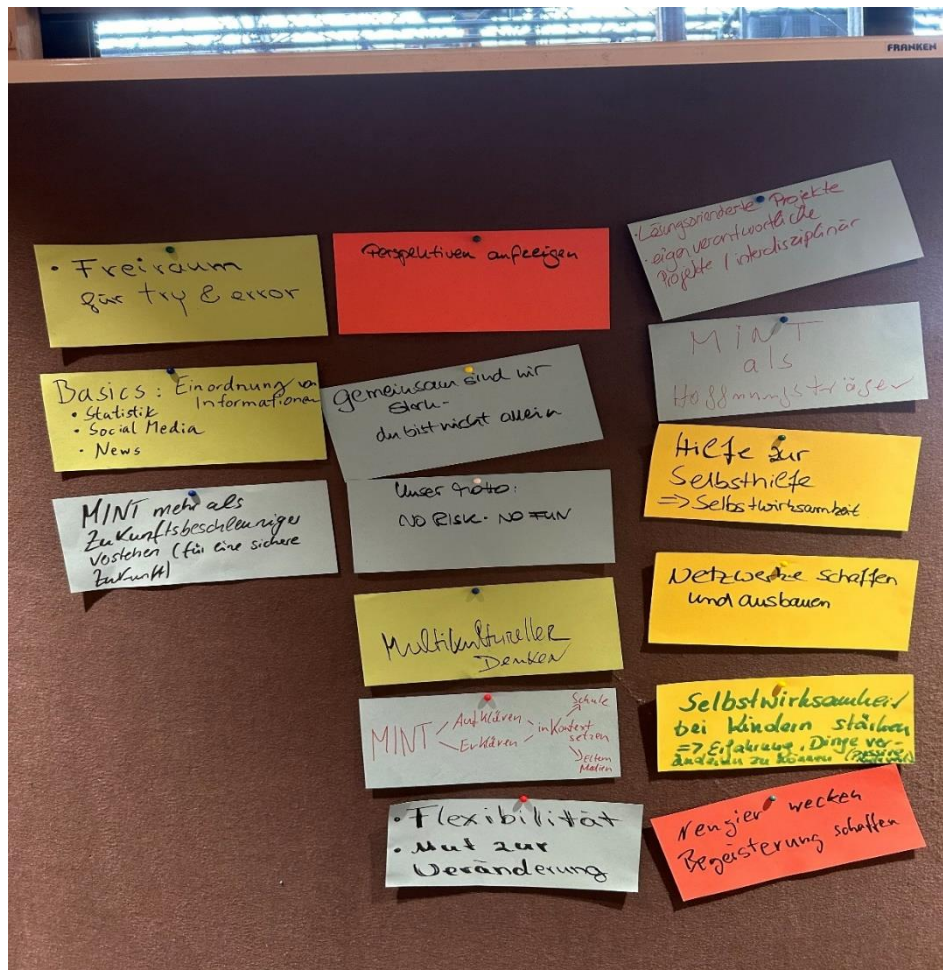 FRANKEN
• Freiraum
für try & error
Basics: Einordnung von
Informationen
• Statistik
• Social Media
• News
MINT mehr als
Zukunftsbeschleuniger
vostehen (für eine sichere
Zukunft)
Perspektiven aufzeigen
gemeinsam sind wir
stark-
du bist nicht allein
Unser Motto:
NO RISK - NO FUN
Multikultureller
Denken
MINT
Aufklären
Erklären
in Kontext
setzen
Schule
Eltern
Medien
• Flexibilität
• Mut zur
Veränderung
• Lösungsorientierte Projekte
• eigenverantwortliche
Projekte / interdisziplinär
MINT
als
Hoffnungsträger
Hilfe zur
Selbsthilfe
=> Selbstwirksamkeit
Netzwerke schaffen
und ausbauen
Selbstwirksamkeit
bei Kindern stärken
=> Erfahrung, Dinge ver-
ändern zu können
Neugier wecken
Begeisterung schaffen